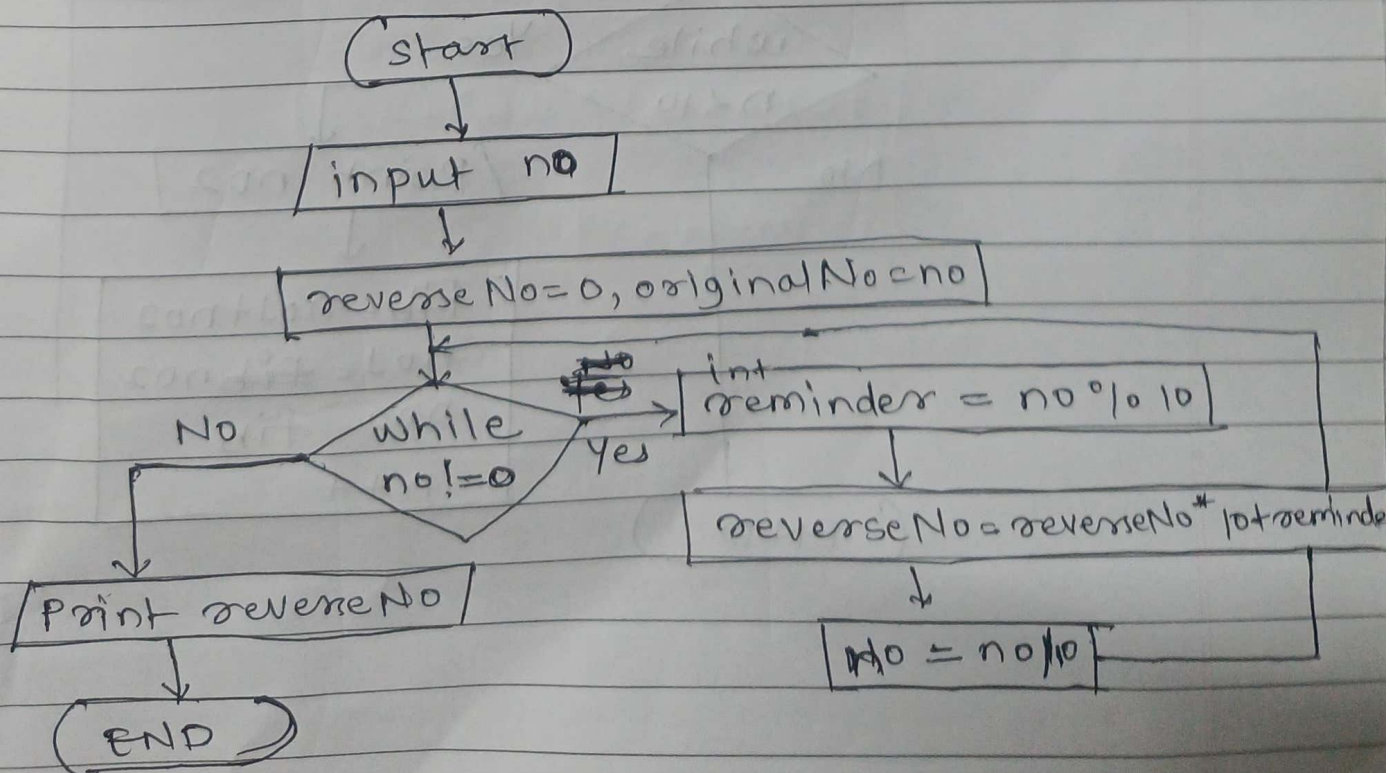 start
input no
reverseNo=0, originalNo=no
while
no!=0
No
Yes
int
reminder = no%10
reverseNo=reverseNo*10+reminde
No = no/10
Print reverseNo
END